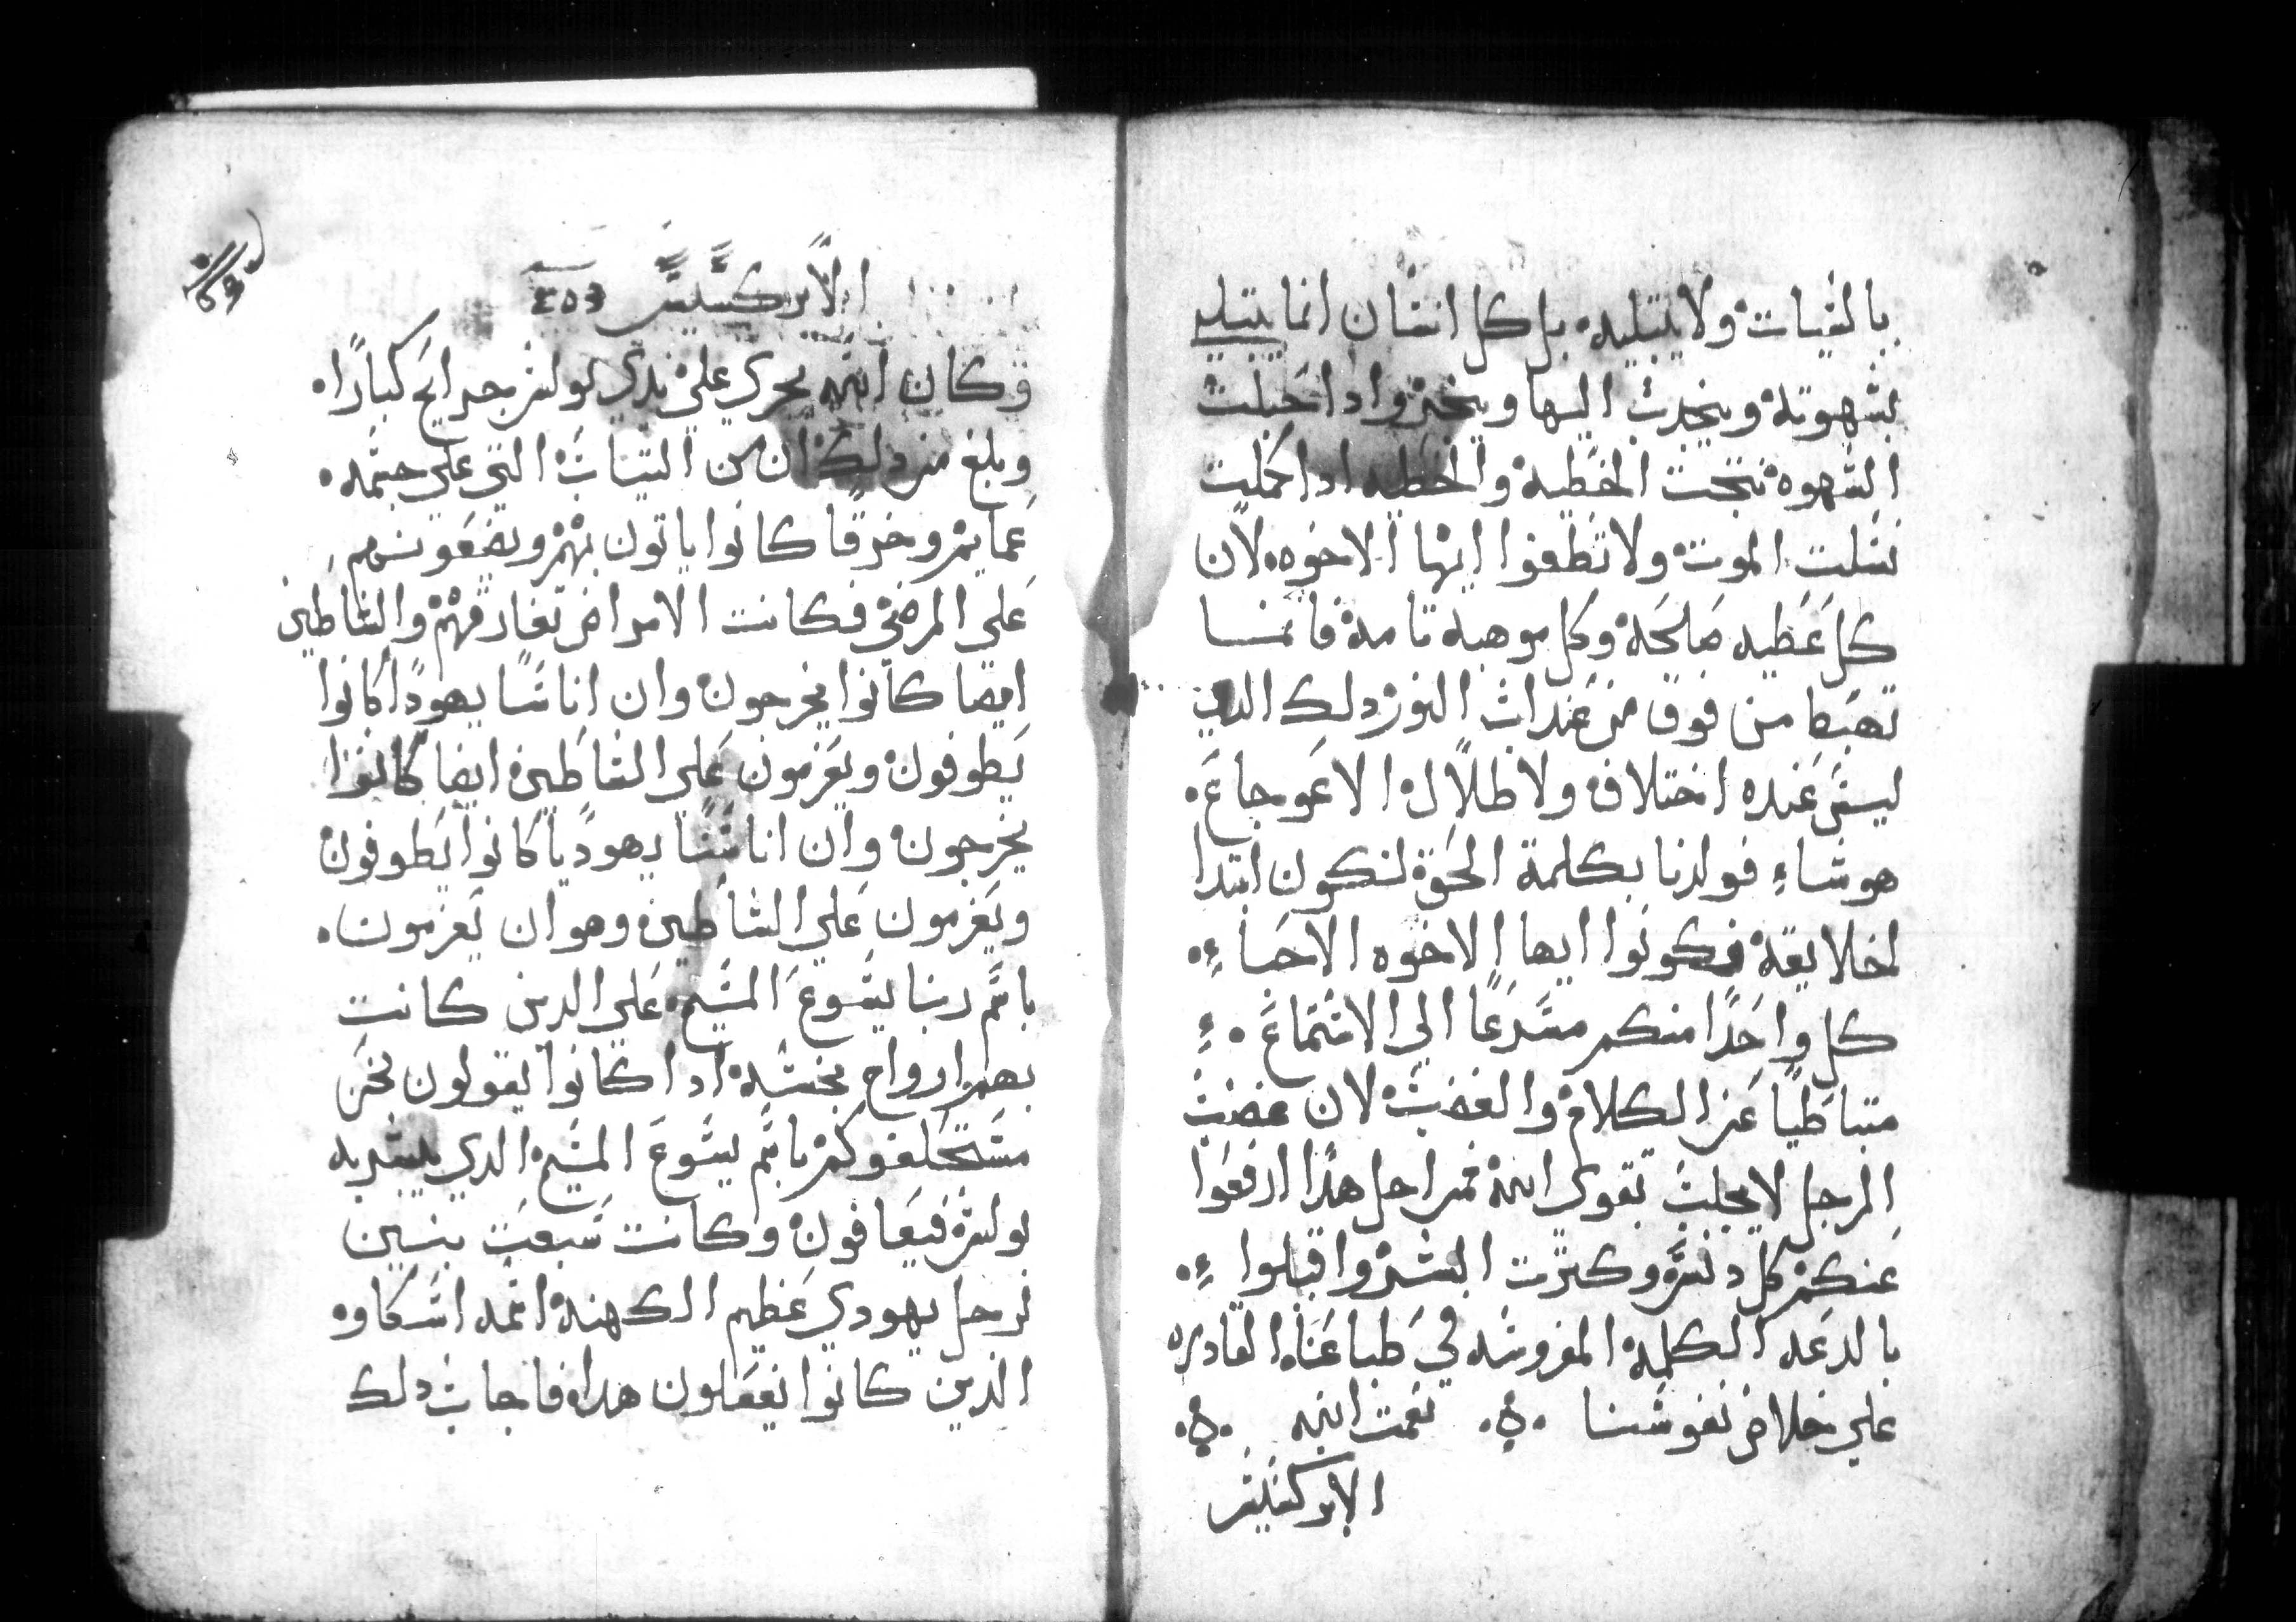 بالسيات ولا يبتليه بل كل انسان انما يبتلي
بشهوته وينجدب اليها وينخدع وادا حبلت
الشهوه نتجت الخطيه والخطيه ادا كملت
نسلت الموت ولا تطغوا ايها الاخوه لان
كل عطيه صالحه وكل موهبه تامه فانما
تهبط من فوق من عند اب النور دلك الدي
ليس عنده اختلاف ولا ظلال الاعوجاع
هو شاء فولدنا بكلمة الحق لنكون ابتدا
لخلايقه فكونوا ايها الاخوه الاحباء
كل واحدا منكم مسرعا الي الاستماع
متباطيا عن الكلام والغضب لان غضب
الرجل لا يجلب تقوي الله من اجل هدا ارفعوا
عنكم كل دنس وكثرت الشر واقبلوا
بالدعه الكلمه المغروسه في طباعنا القادره
علي خلاص نفوسنا نعمت الله
الابركسيس
الابركسيس
وكان الله يجري علي يدي بولس جرايح كبارا
وبلغ من دلك ان من التياب التي علي جسمه
عمايم وخرقا كانوا ياتون بهم ويضعونهم
علي المرضي فكانت الامراض تفارقهم والشاطين
ايضا كانوا يخرجون وان اناسا يهودا كانوا
يطوفون ويعزمون علي الشاطين ايضا كانوا
يخرجون وان اناسا يهوديا كانوا يطوفون
ويعزمون علي الشاطين وهو ان يعزمون
باسم ربنا يسوع المسيح علي الدين كانت
بهم ارواح نجسه ادا كانوا يقولون نحن
مستحلفوكم باسم يسوع المسيح الدي يبشر به
بولس فيعافون وكانت سبعت بنين
لرجل يهودي عظيم الكهنه اسمه اسكاوه
الدين كانوا يفعلون هدا فاجاب دلك